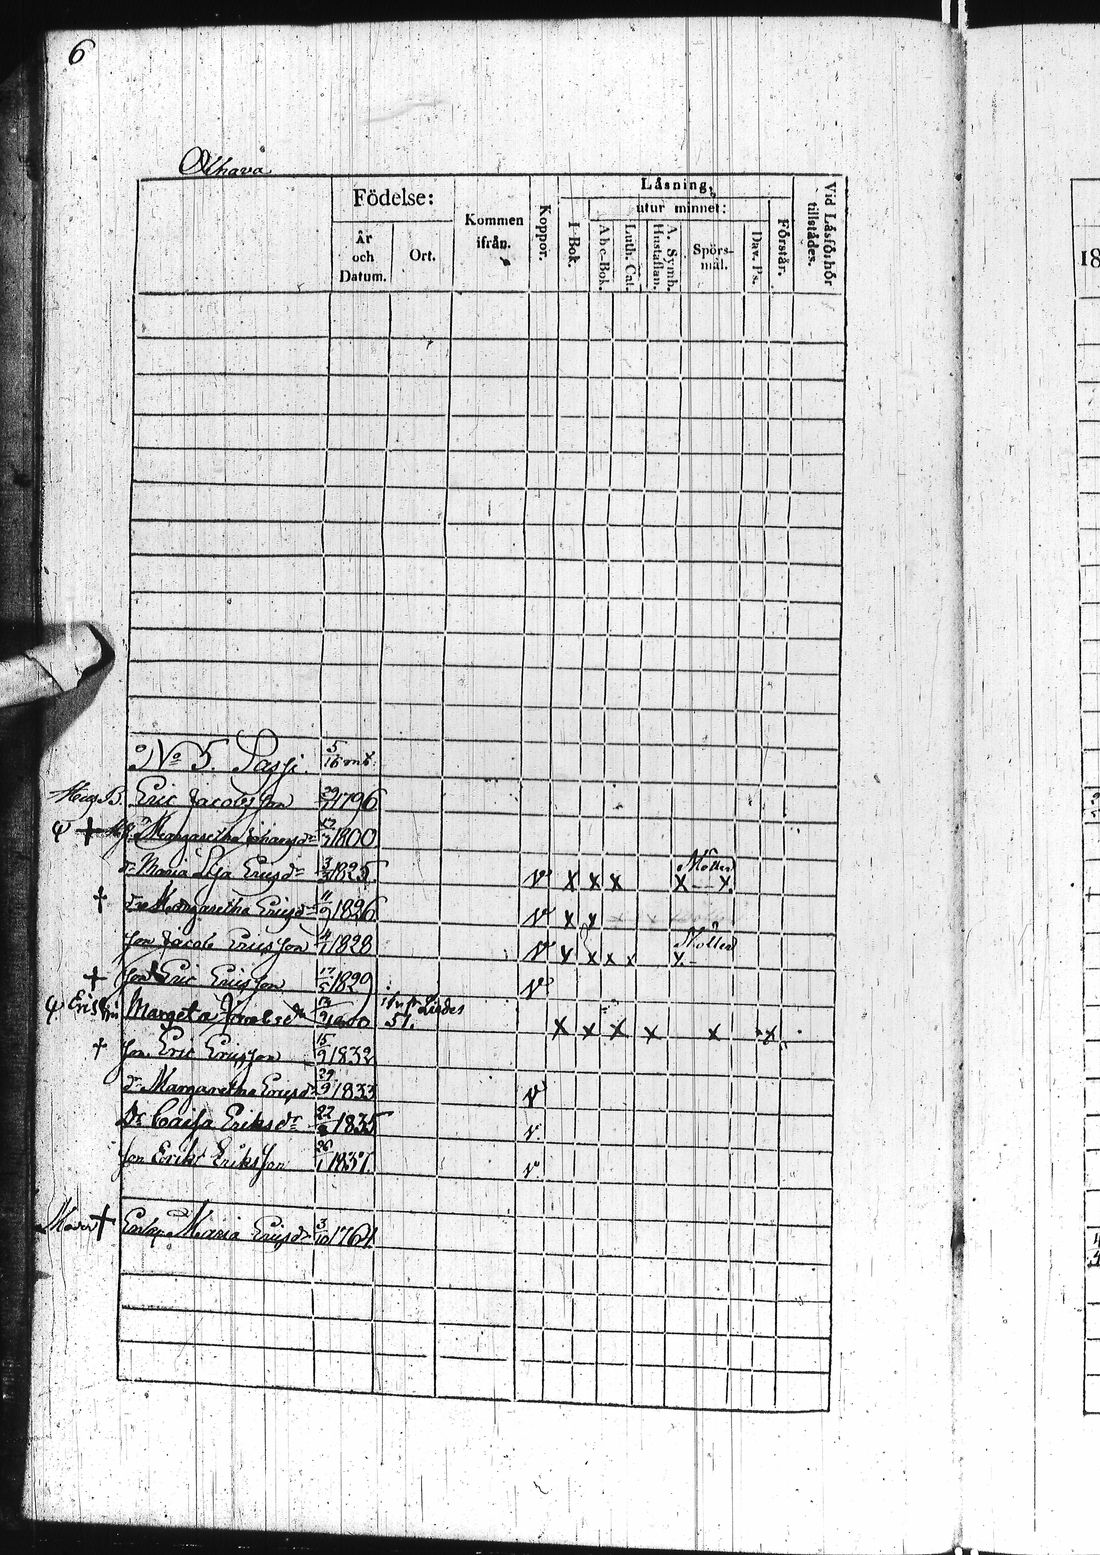 6
Olhava
Födelse:
År och Datum.
Ort.
Kommen ifrån.
Koppor.
Läsning,
I Bok.
utur minnet:
Abc-Bok.
Luth. Cat.
A. Symb. Hustaflan.
Spörsmål.
Dav. Ps.
Förstår.
Vid Läsförhör tillstädes.
18
No 5. Passi. 5/16 mt.
B. Eric Jacobsson 29 1796
Margaretha 1800
dr Maria Lisa Ericsdr 3 1825 v x x x Möller x x
† dr Margaretha Ericsdr 11/9 1826 v x x
Son Jacob Ericsson 4 1828 v x x x x Möller x
† Son Eric Ericsson 17/5 1829 v
Margeta 51. x x x x x x
† Son Eric Ericsson 15/9 1832
dr Margaretha Ericsdr 29/9 1833 v
Dr Caisa Eriksdr 22 1835 v
Son Erik Eriksson 26/1 1837 v
Moder † Enkan Maria Ericsdr 3/10 1764